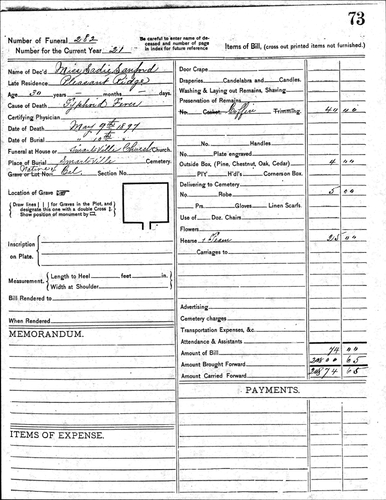 73
Number of Funeral 282
Number for the Current Year 21
Be careful to enter name of deceased and number of page in index for future reference
Items of Bill, (cross out printed items not furnished.)
Name of Dec'd Miss Sadie Sanford
Late Residence Pleasant Ridge
Age 30 years - months - days.
Cause of Death Typhoid Fever
Certifying Physician
Date of Death May 9th 1897
Date of Burial " 10th "
Funeral at House or Smartsville Church Church.
Place of Burial Smartsville Cemetery.
Grave or Lot No. Section No.
Location of Grave
Draw lines | | for Graves in the Plot, and designate this one with a double Cross
Show position of monument by
Inscription on Plate.
Measurement, Length to Heel feet in.
Width at Shoulder
Bill Rendered to
When Rendered
MEMORANDUM.
ITEMS OF EXPENSE.
Door Crape
Draperies, Candelabra and Candles.
Washing & Laying out Remains, Shaving
Preservation of Remains
No. Casket, Coffin Trimming. 40 00
No. Handles
Plate engraved
Outside Box, (Pine, Chestnut, Oak, Cedar) 4 00
PIY H'd'l's Corners on Box.
Delivering to Cemetery
No. Robe 5 00
Prs. Gloves Linen Scarfs.
Use of Doz. Chairs
Flowers
Hearse & Team 25 00
Carriages to
Advertising
Cemetery charges
Transportation Expenses, &c.
Attendance & Assistants
Amount of Bill 74 00
Amount Brought Forward 65
Amount Carried Forward 74 65
PAYMENTS.